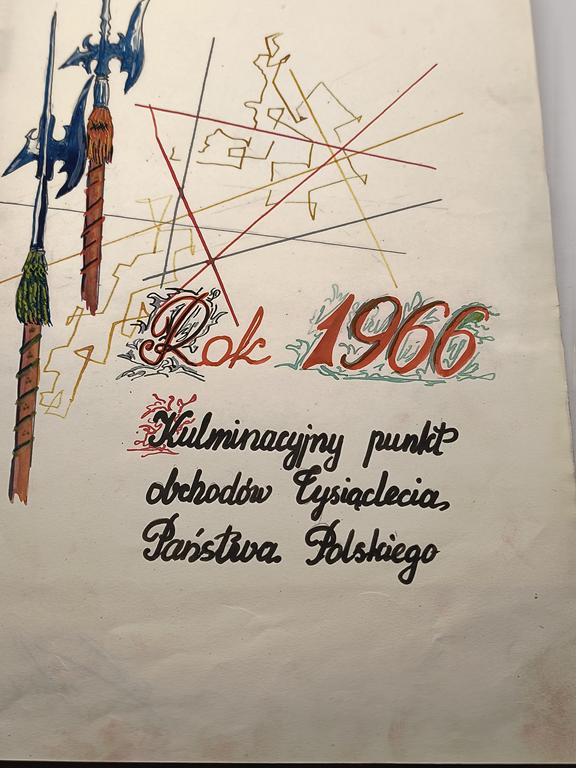 Rok 1966
Kulminacyjny punkt
obchodów Tysiąclecia
Państwa Polskiego